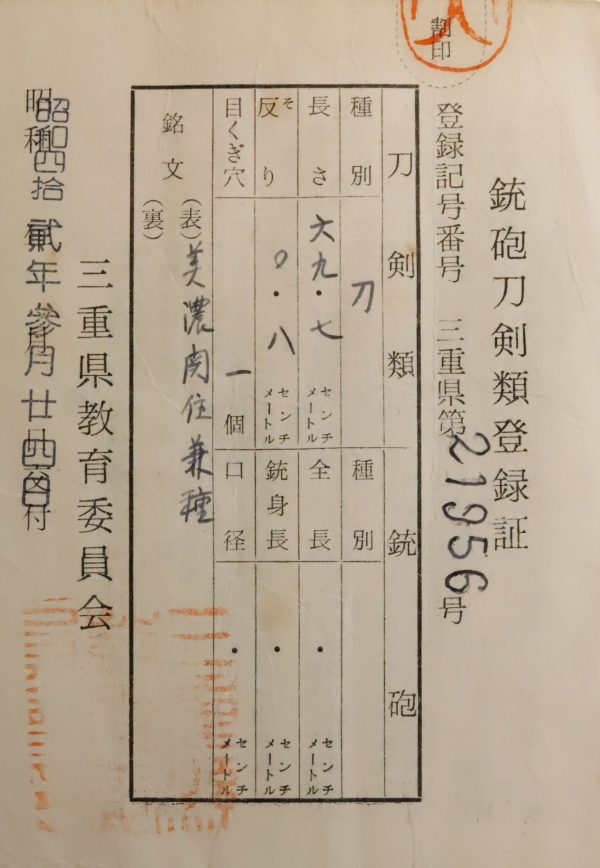 割印
銃砲刀剣類登録証
登録記号番号 三重県第21956号
刀剣類 銃砲
種別 刀 種別
長さ 六九・七 センチメートル 全長 ・ センチメートル
反り そ 〇・八 センチメートル 銃身長 ・ センチメートル
目くぎ穴 一個 口径 ・ センチメートル
銘文 (表) 美濃関住兼種
(裏)
三重県教育委員会
昭和四拾貳年参月廿四日付